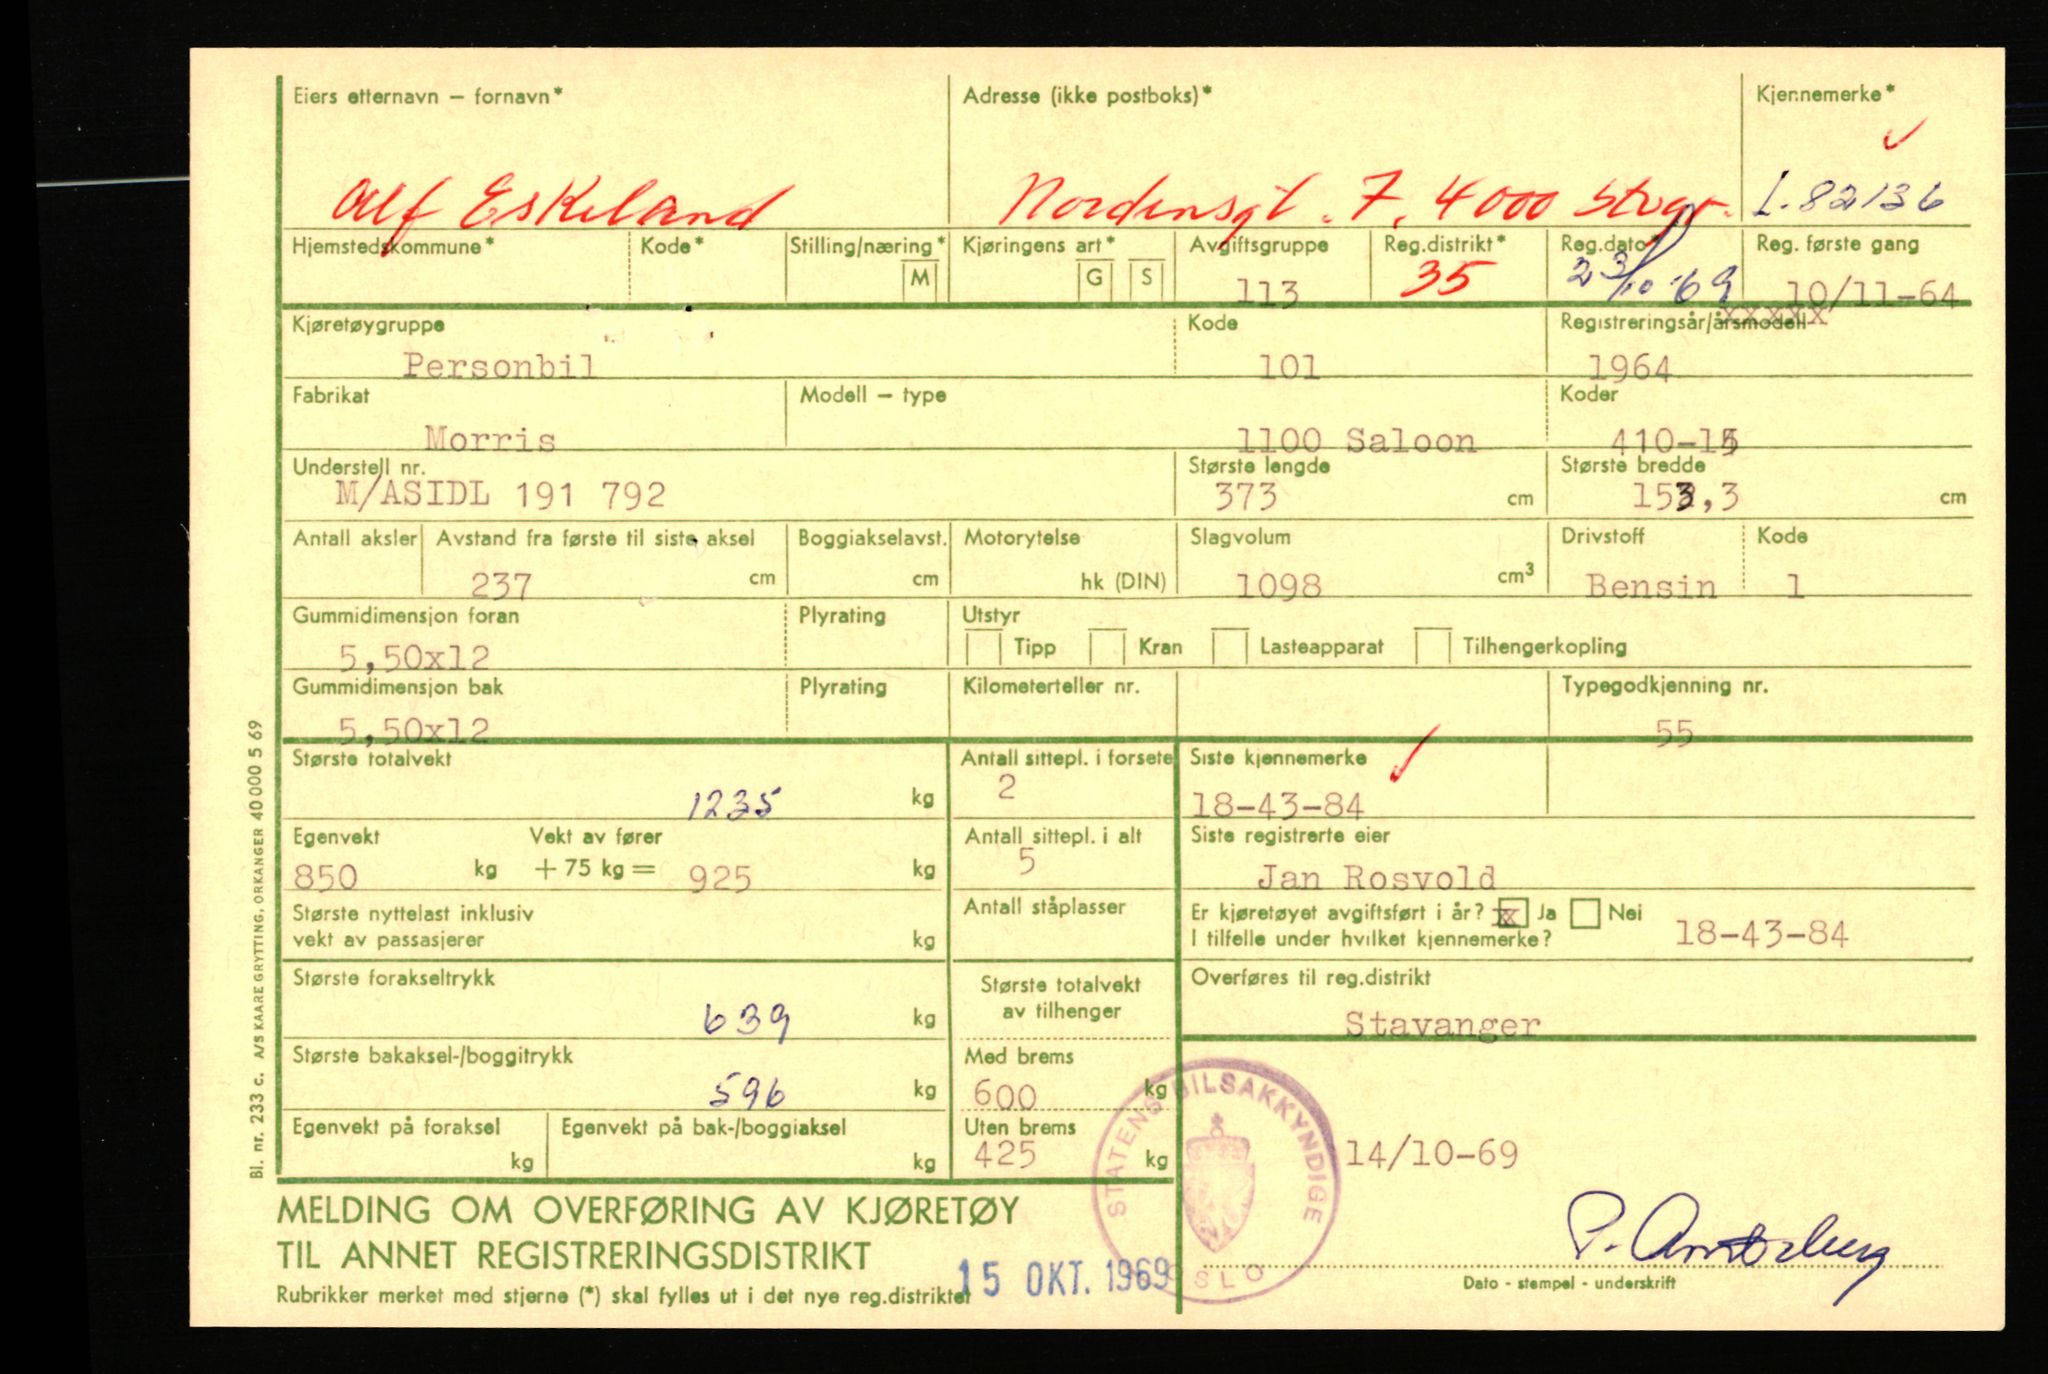 Eiers etternavn – fornavn* Adresse (ikke postboks)* Kjennemerke*
Alf Eskeland Nordensgt. 7, 4000 Stvgr. L-82136
Hjemstedskommune* Kode* Stilling/næring* M Kjøringens art* G S Avgiftsgruppe Reg.distrikt* Reg.dato* Reg. første gang
113 35 23/10-69 10/11-64
Kjøretøygruppe Kode Registreringsår/årsmodell
Personbil 101 1964
Fabrikat Modell – type Koder
Morris 1100 Saloon 410-15
Understell nr. Største lengde Største bredde
M/ASIDL 191 792 373 cm 153,3 cm
Antall aksler Avstand fra første til siste aksel Boggiakselavst. Motorytelse Slagvolum Drivstoff Kode
237 cm cm hk (DIN) 1098 cm³ Bensin 1
Gummidimensjon foran Plyrating Utstyr
5,50x12 Tipp Kran Lasteapparat Tilhengerkopling
Gummidimensjon bak Plyrating Kilometerteller nr. Typegodkjenning nr.
5,50x12 55
Største totalvekt Antall sittepl. i forsete Siste kjennemerke
1235 kg 2 18-43-84
Egenvekt Vekt av fører Antall sittepl. i alt Siste registrerte eier
850 kg + 75 kg = 925 kg 5 Jan Rosvold
Største nyttelast inklusiv Antall ståplasser Er kjøretøyet avgiftsført i år? x Ja Nei
vekt av passasjerer kg I tilfelle under hvilket kjennemerke? 18-43-84
Største forakseltrykk Største totalvekt Overføres til reg.distrikt
639 kg av tilhenger Stavanger
Største bakaksel-/boggitrykk Med brems
596 kg 600 kg
Egenvekt på foraksel Egenvekt på bak-/boggiaksel Uten brems
kg kg 425 kg 14/10-69
STATENS BILSAKKYNDIGE
OSLO
MELDING OM OVERFØRING AV KJØRETØY
TIL ANNET REGISTRERINGSDISTRIKT
15 OKT. 1969
Rubrikker merket med stjerne (*) skal fylles ut i det nye reg.distriktet
Dato - stempel - underskrift
Bl. nr. 233 c. A/S KAARE GRYTTING, ORKANGER 40 000 5 69